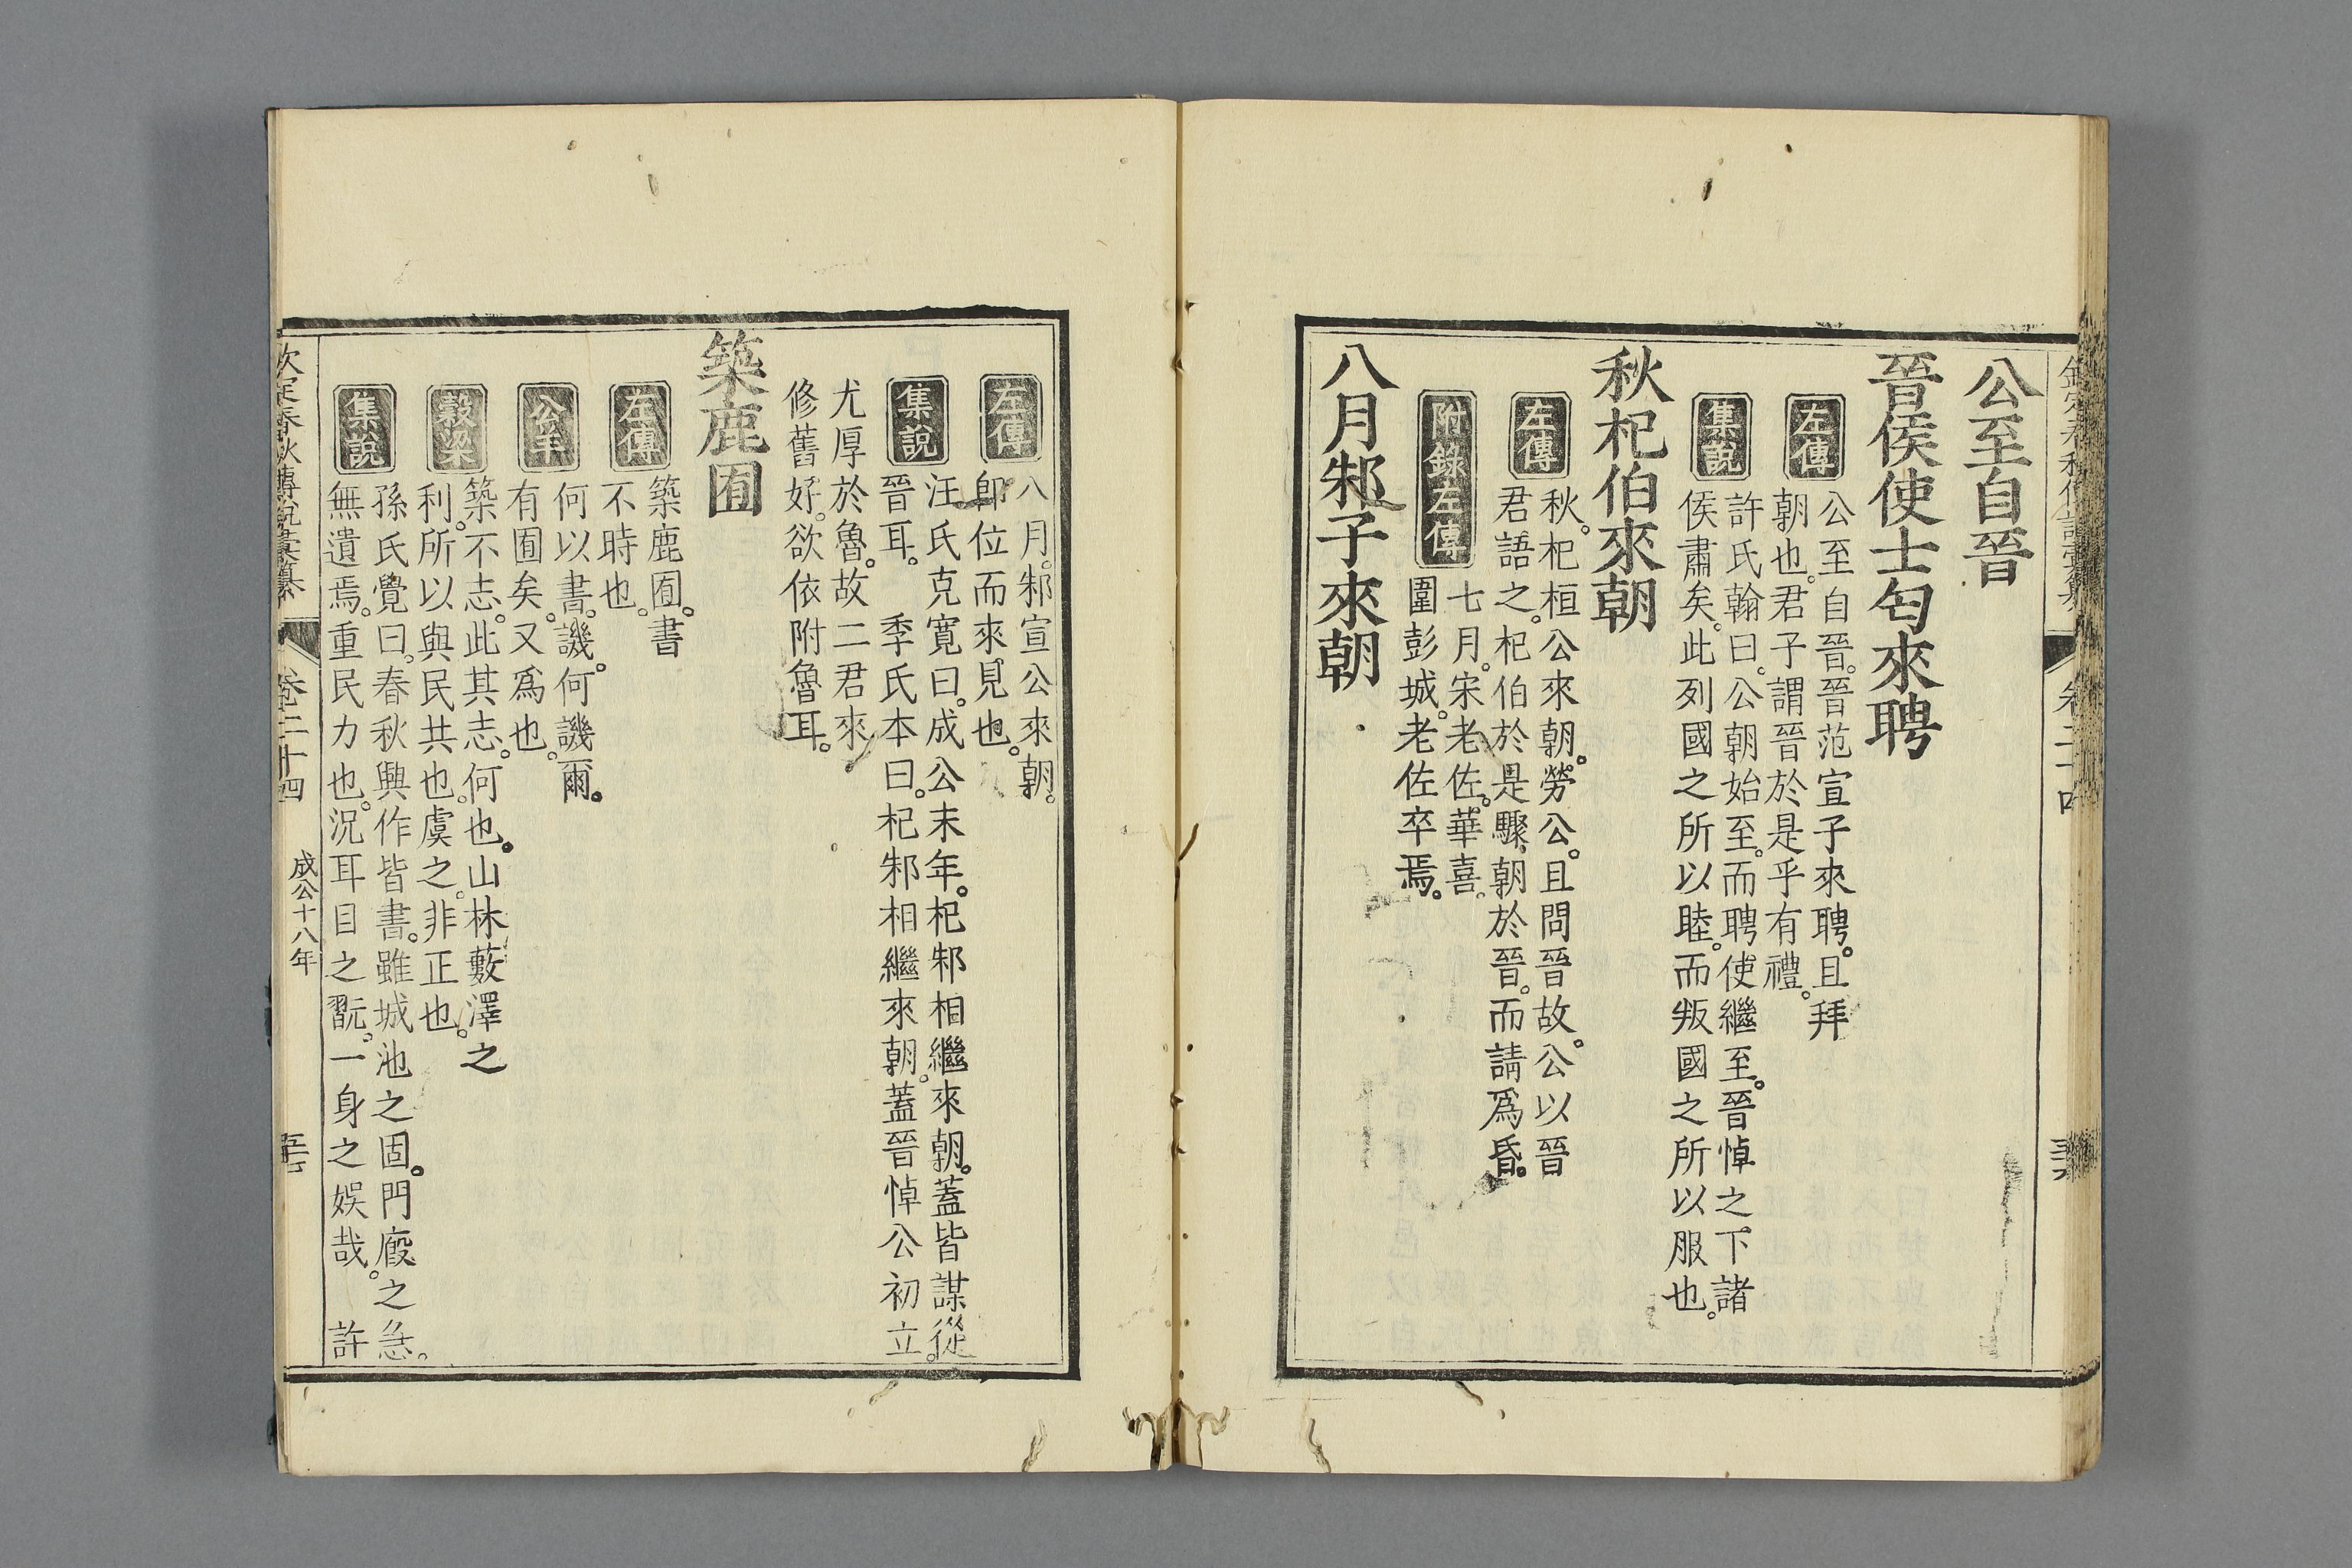 公至自晉
晉侯使士匄來聘
左傳
公至自晉。晉范宣子來聘。且拜
朝也。君子謂晉於是乎有禮。
集說
許氏翰曰。公朝始至。而聘使繼至。晉悼之下諸
侯肅矣。此列國之所以睦。而叛國之所以服也。
秋杞伯來朝
左傳
秋。杞桓公來朝。勞公。且問晉故。公以晉
君語之。杞伯於是驟朝於晉。而請爲昏。
附錄左傳
七月。宋老佐。華喜。
圍彭城。老佐卒焉。
八月邾子來朝
左傳
八月。邾宣公來朝。
卽位而來見也。
集說
汪氏克寬曰。成公末年。杞邾相繼來朝。蓋皆謀從
晉耳。 季氏本曰。杞邾相繼來朝。蓋晉悼公初立。
尤厚於魯。故二君來
修舊好。欲依附魯耳。
築鹿囿
左傳
築鹿囿。書
不時也。
公羊
何以書。譏。何譏爾。
有囿矣。又爲也。
穀梁
築不志。此其志。何也。山林藪澤之
利。所以與民共也。虞之。非正也。
集說
孫氏覺曰。春秋興作皆書。雖城池之固。門廄之急。
無遺焉。重民力也。況耳目之翫。一身之娛哉。 許
欽定春秋傳說彙纂
卷二十四
成公十八年